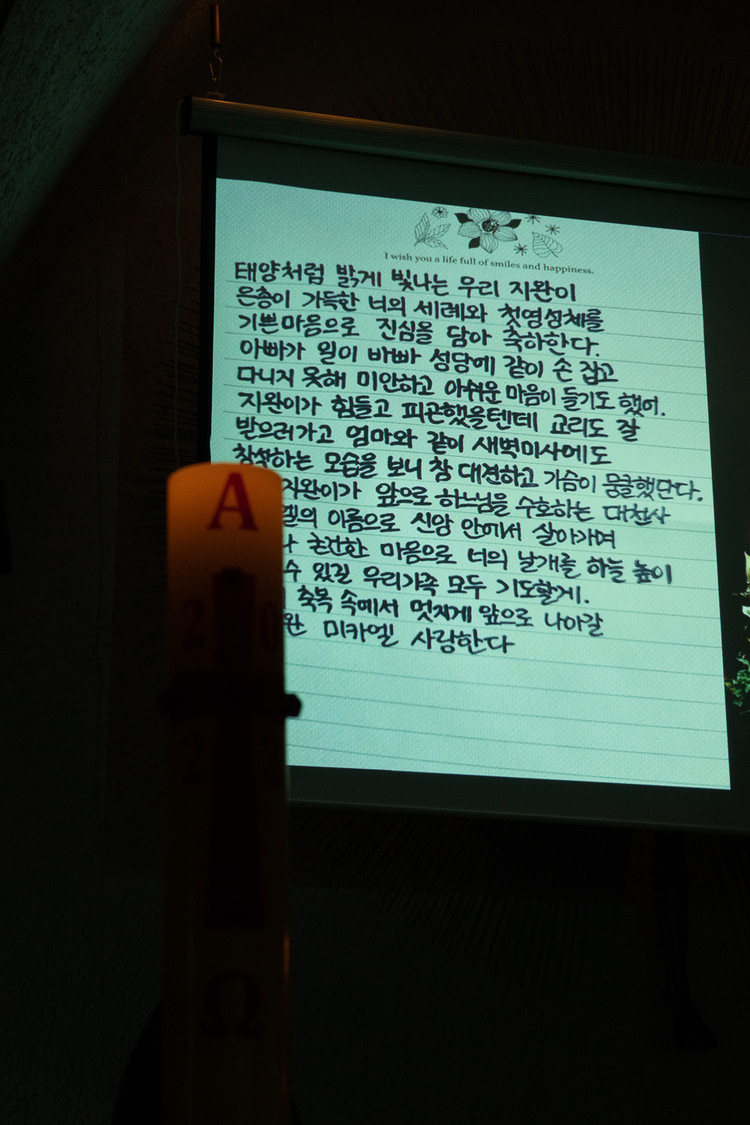 I wish you a life full of smiles and happiness.
태양처럼 밝게 빛나는 우리 지완이
은총이 가득한 너의 세례와 첫영성체를
기쁜마음으로 진심을 담아 축하한다.
아빠가 일이 바빠 성당에 같이 손 잡고
다니지 못해 미안하고 아쉬운 마음이 들기도 했어.
지완이가 힘들고 피곤했을텐데 교리도 잘
받으러가고 엄마와 같이 새벽미사에도
참석하는 모습을 보니 참 대견하고 가슴이 뭉클했단다.
지완이가 앞으로 하느님을 수호하는 대천사
엘의 이름으로 신앙 안에서 살아가며
마음으로 너의 날개를 하늘 높이
수 있길 우리가족 모두 기도할게.
축복 속에서 멋지게 앞으로 나아갈
완 미카엘 사랑한다
A
2 0
2 2
Ω